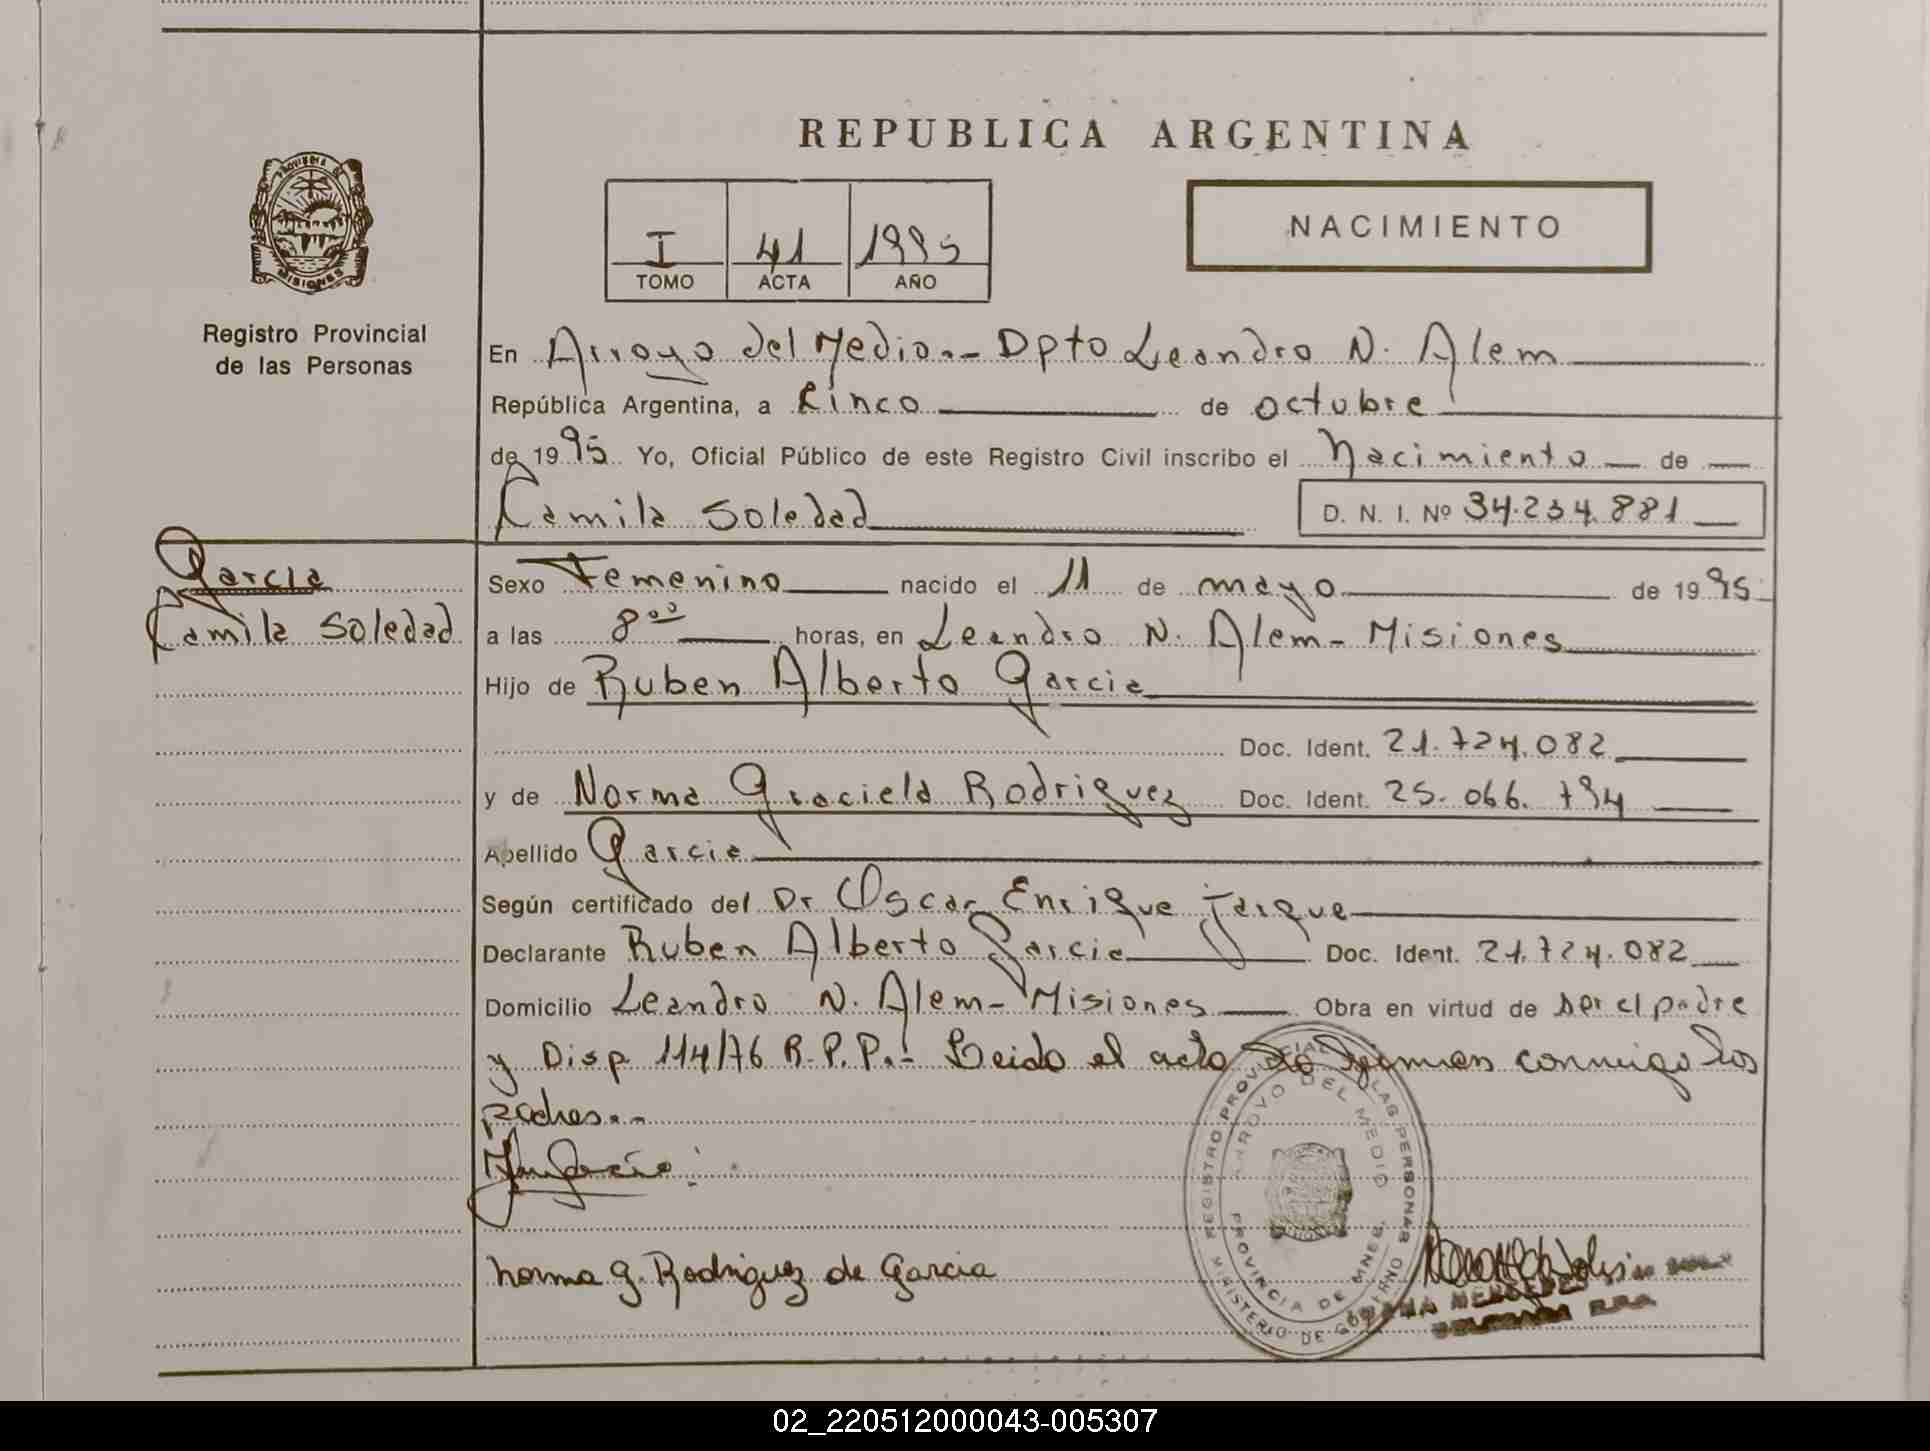 REPUBLICA ARGENTINA
PROVINCIA DE
MISIONES
I 41 1995
TOMO ACTA AÑO
NACIMIENTO
Registro Provincial
de las Personas
En Arroyo del Medio.- Dpto Leandro N. Alem
República Argentina, a Cinco de octubre
de 1995 Yo, Oficial Público de este Registro Civil inscribo el Nacimiento de
Camila Soledad D. N. I. Nº 34.234.881
Garcia
Camila Soledad
Sexo Femenino nacido el 11 de mayo de 1995
a las 8 00 horas, en Leandro N. Alem - Misiones
Hijo de Ruben Alberto Garcia
Doc. Ident. 21.724.082
y de Norma Graciela Rodriguez Doc. Ident. 25.066.794
Apellido Garcia
Según certificado del Dr Oscar Enrique Jarque
Declarante Ruben Alberto Garcia Doc. Ident. 21.724.082
Domicilio Leandro N. Alem - Misiones Obra en virtud de ser el padre
y Disp. 114/76 R.P.P.- Leido el acta lo firman conmigo los
padres.-
norma g. Rodriguez de Garcia
REGISTRO PROVINCIAL DE LAS PERSONAS
ARROYO DEL MEDIO
PROVINCIA DE MNES.
MINISTERIO DE GOBIERNO
02_220512000043-005307